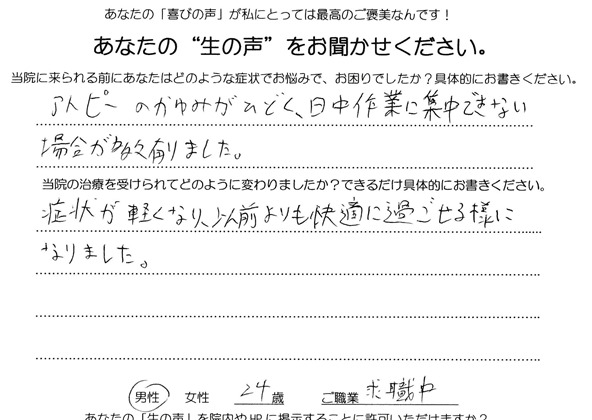 あなたの「喜びの声」が私にとっては最高のご褒美なんです！
あなたの“生の声”をお聞かせください。
当院に来られる前にあなたはどのような症状でお悩みで、お困りでしたか？具体的にお書きください。
アトピーのかゆみがひどく、日中作業に集中できない
場合が多く有りました。
当院の治療を受けられてどのように変わりましたか？できるだけ具体的にお書きください。
症状が軽くなり、以前よりも快適に過ごせる様に
なりました。
男性 女性 24歳 ご職業 求職中
あなたの「生の声」を院内やHPに掲示することに許可いただけますか？